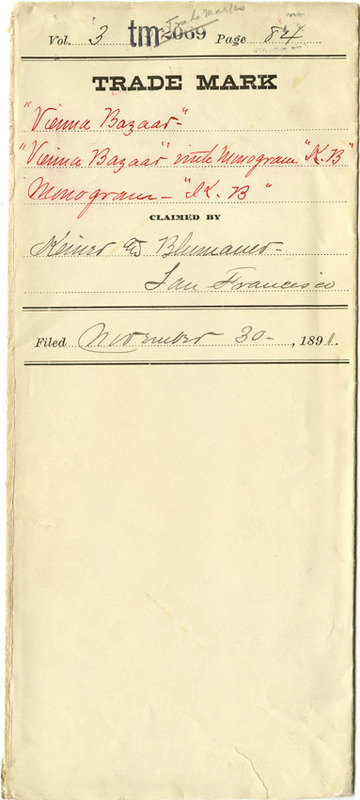 Vol. 3 tm2069 Page 84
TRADE MARK
"Vienna Bazaar"
"Vienna Bazaar" with Monogram "K. B"
Monogram - "K. B"
CLAIMED BY
Keiner & Blumauer -
San Francisco
Filed November 30 - , 1891.